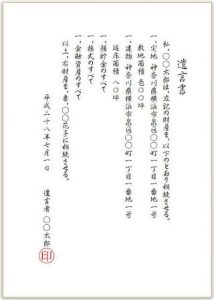 遺言書
私、〇〇太郎は、左記の財産を、以下のとおり相続させる。
一、宅地 神奈川県横浜市泉区〇〇町一丁目一番地一号
敷地面積 壱〇〇坪
一、建物 神奈川県横浜市泉区〇〇町一丁目一番地一号
延床面積 八〇坪
一、預貯金のすべて
一、株式のすべて
一、金融資産のすべて
以上、右財産を、妻、〇〇花子に相続させる。
平成二十八年七月一日
遺言者 〇〇太郎
印